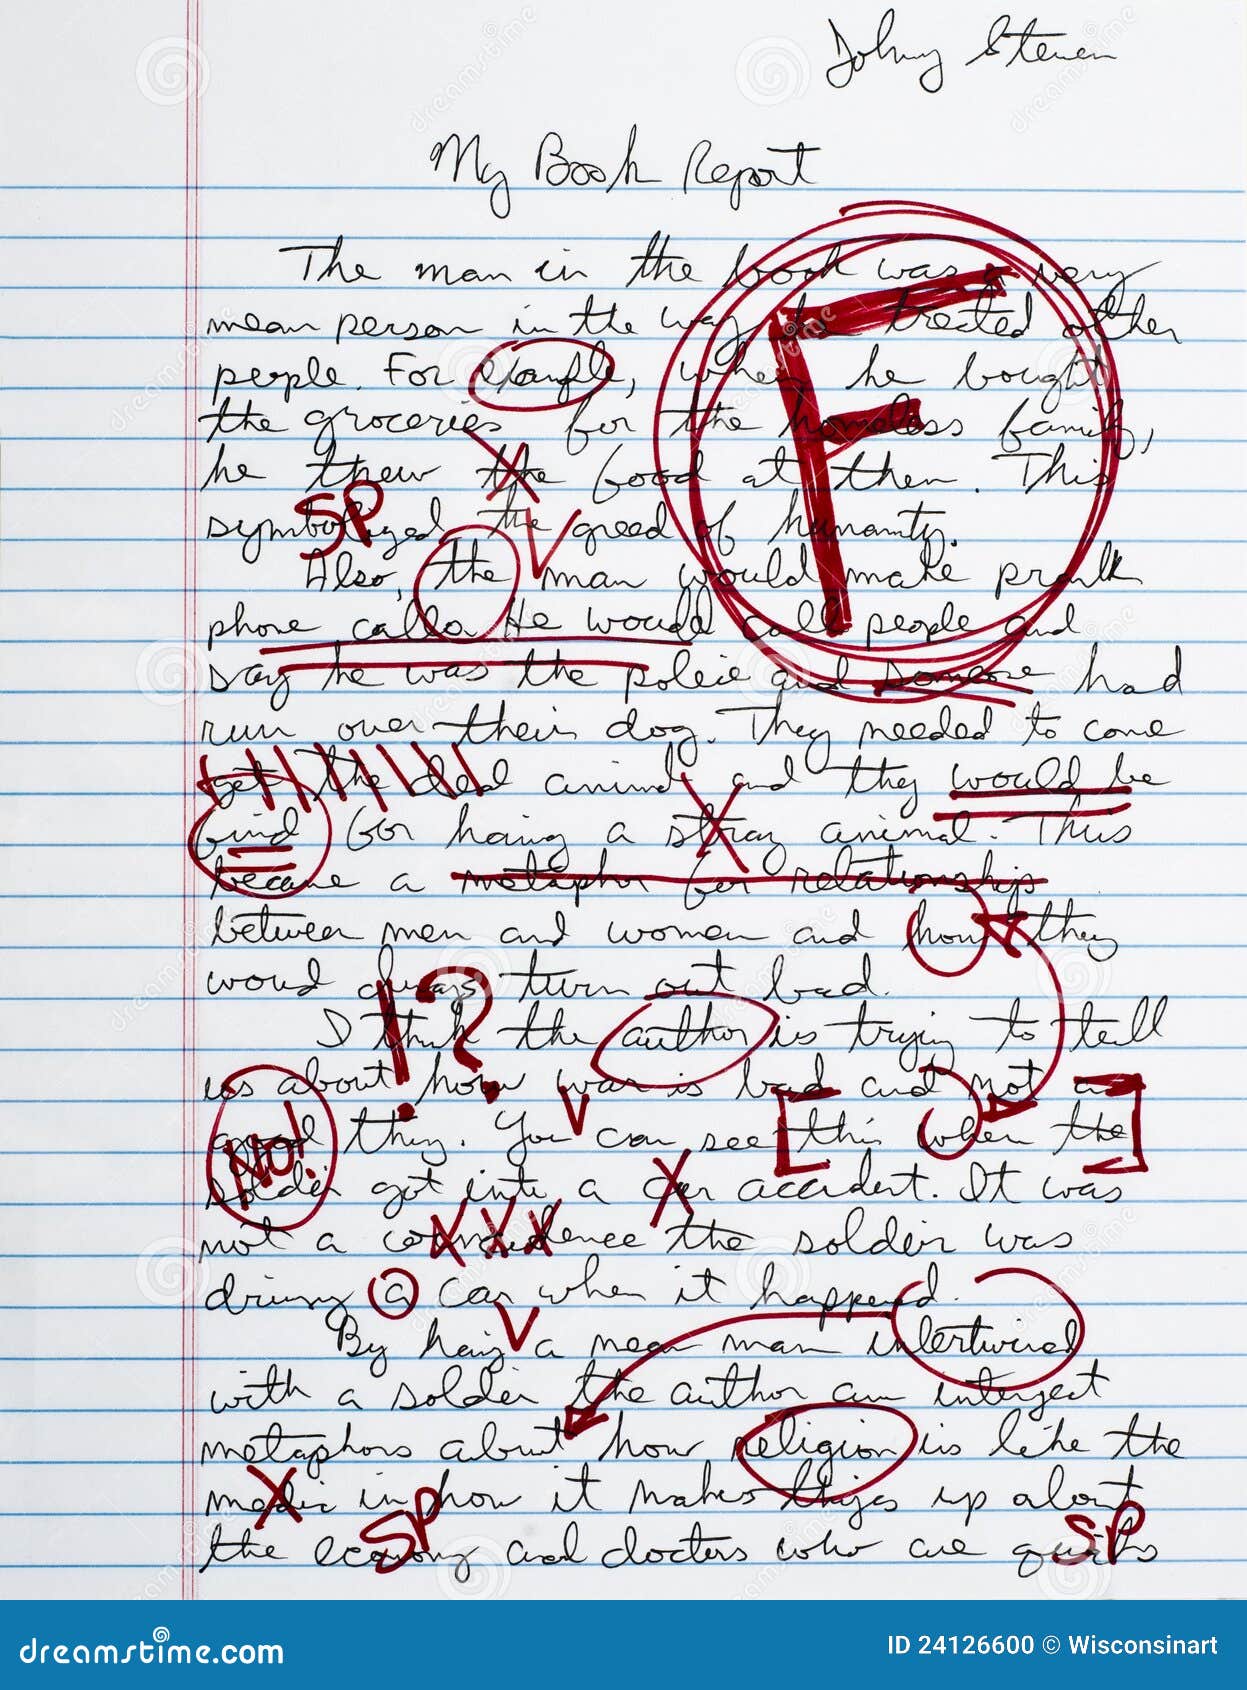 Johny Steven
My Book Report
The man in the book was a very
mean person in the way he treated other
people. For example, when he bought
the groceries for the homeless family,
he threw the food at them. This
SP
symbolized the greed of humanity.
Also, the man would make prank
phone calls. He would call people and
say he was the police and someone had
run over their dog. They needed to come
get the dead animal and they would be
find for having a stray animal. This
became a metaphor for relationships
between men and women and how they
woud always turn out bad.
I think the author is trying to tell
us about how war is bad and not a
good thing. You can see this when the
NO!
soldier got into a car accident. It was
not a coincidence the soldier was
driving a car when it happened.
By having a mean man intertwined
with a soldier the author can interject
metaphors about how religion is like the
media in how it makes things up about
the economy and doctors who are quirks
SP
SP
F
!?
dreamstime.com
ID 24126600 © Wisconsinart